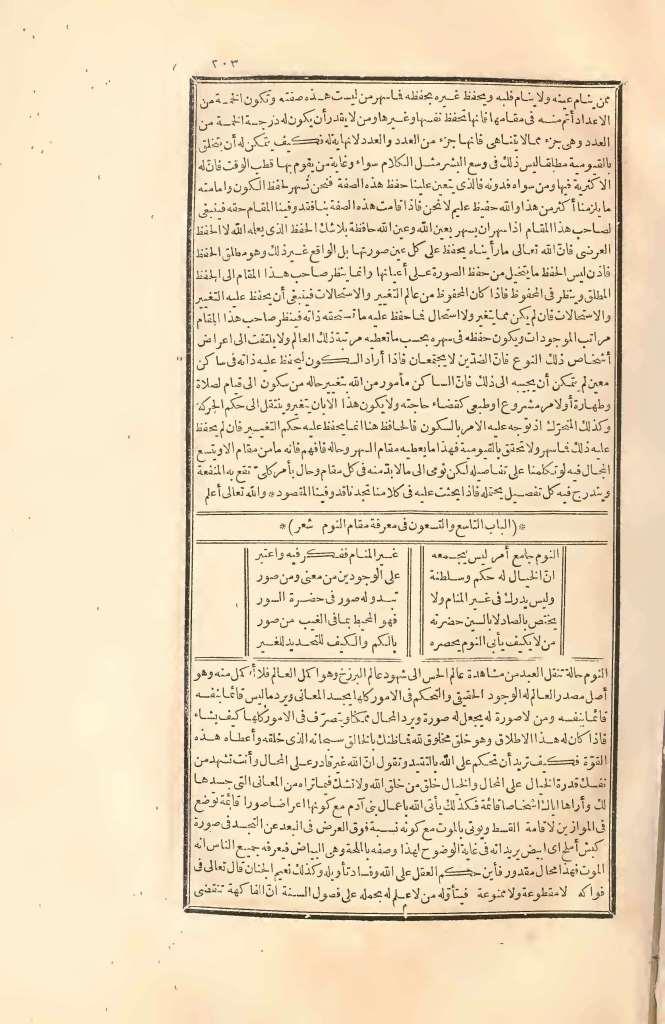 ٢٠٣
ممن ينام عينه ولا ينام قلبه ويحفظ غيره بحفظه فما سهر من ليست هذه صفته وتكون الخمسة من
الاعداد أتم منه فى مقامها فانها تحفظ نفسها وغيرها ومن لا يقدر أن يكون له درجة الخمسة من
العدد وهى جزء مما لا يتناهى فانها جزء من العدد والعدد لا نهاية له فكيف يتمكن له أن يتخلق
بالقيومية مطلقا ليس ذلك فى وسع البشر مثل الكلام سواء وغاية من يقوم بها قطب الوقت فان له
الاكثرية فيها ومن سواه فدونه فالذى يتعين علينا حفظ هذه الصفة فنحن نسهر لحفظ الكون وامامته
ما يلزمنا أكثر من هذا والله حفيظ عليم لا نحن فاذا قامت هذه الصفة بنا فقد وفينا المقام حقه فينبغى
لصاحب هذا المقام اذا سهر ان يسهر بعين الله وعين الله حافظة بلا شك الحفظ الذى يعلمه الله لا الحفظ
العرضى فان الله تعالى ما رأيناه يحفظ على كل عين صورتها بل الواقع غير ذلك وهو مطلق الحفظ
فاذن ليس الحفظ ما يتخيل من حفظ الصورة على أعيانها وانما ينظر صاحب هذا المقام الى الحفظ
المطلق وينظر فى المحفوظ فاذا كان المحفوظ من عالم التغيير والاستحالات فينبغى أن يحفظ عليه التغيير
والاستحالات فان لم يكن مما يتغير ولا استحال فما حفظ عليه ما تستحقه ذاته فينظر صاحب هذا المقام
مراتب الموجودات ويكون حفظه فى سهره بحسب ما تعطيه مرتبة ذلك العالم ولا يلتفت الى اعراض
أشخاص ذلك النوع فان الضدين لا يجتمعان فاذا أراد السكون ليحفظ عليه ذاته فى ساكن
معين لم يتمكن أن يجيبه الى ذلك فان الساكن مأمور من الله بتغيير حاله من سكون الى قيام لصلاة
وطهارة أو لامر مشروع أو طبعى كقضاء حاجته ولا يكون هذا الا بان يتغير وينتقل الى حكم الحركة
وكذلك المتحرك اذ توجه عليه الامر بالسكون فالحافظ هنا انما يحفظ عليه حكم التغيير فان لم يحفظ
عليه ذلك فما سهر ولا تحقق بالقيومية فهذا ما يعطيه مقام السهر وحاله فافهم فانه ما من مقام الا ويتسع
المجال فيه لو تكلمنا على تفاصيله لكن نومى الى ما لا بد منه فى كل مقام وحال بأمر كلى تقع به المنفعة
ويندرج فيه كل تفصيل يحتمله فاذا بحثت عليه فى كلامنا تجدنا قد وفينا المقصود * والله تعالى أعلم
* (الباب التاسع والتسعون فى معرفة مقام النوم شعر) *
النوم جامع أمر ليس يجمعه غير المنام ففكر فيه واعتبر
ان الخيال له حكم وسلطنة على الوجودين من معنى ومن صور
وليس يدرك فى غير المنام ولا تبدو له صور فى حضرة السور
يختص بالصاد لا بالسين حضرته فهو المحيط بما فى الغيب من صور
من لا يكيف يأبى النوم يحصره بالكم والكيف للتحديد للغير
النوم حالة تنقل العبد من مشاهدة عالم الحس الى شهود عالم البرزخ وهو اكمل العالم فلا أكمل منه وهو
أصل مصدر العالم له الوجود الحقيقى والتحكم فى الامور كلها يجسد المعانى ويرد ما ليس قائما بنفسه
قائما بنفسه ومن لا صورة له يجعل له صورة ويرد المحال ممكنا ويتصرف فى الامور كلها كيف يشاء
فاذا كان له هذا الاطلاق وهو خلق مخلوق لله فما ظنك بالخالق سبحانه الذى خلقه وأعطاه هذه
القوة فكيف تريد أن تحكم على الله بالتقييد وتقول ان الله غير قادر على المحال وأنت تشهد من
نفسك قدرة الخيال على المحال والخيال خلق من خلق الله ولا تشك فيما تراه من المعانى التى جسدها
لك وأراها اياك اشخاصا قائمة فكذلك يأتى الله باعمال بنى آدم مع كونها اعراضا صورا قائمة توضع
فى الموازين لاقامة القسط ويؤتى بالموت مع كونه نسبة فوق العرض فى البعد عن التجسد فى صورة
كبش أملح اى ابيض يريد انه فى غاية الوضوح لهذا وصفه بالملحة وهى البياض فيعرفه جميع الناس انه
الموت فهذا محال مقدور فأين حكم العقل على الله وفساد تأويله وكذلك نعيم الجنان قال تعالى فى
فواكه لا مقطوعة ولا ممنوعة فيتأوله من لا علم له يحمله على فصول السنة ان الفاكهة تنقضى